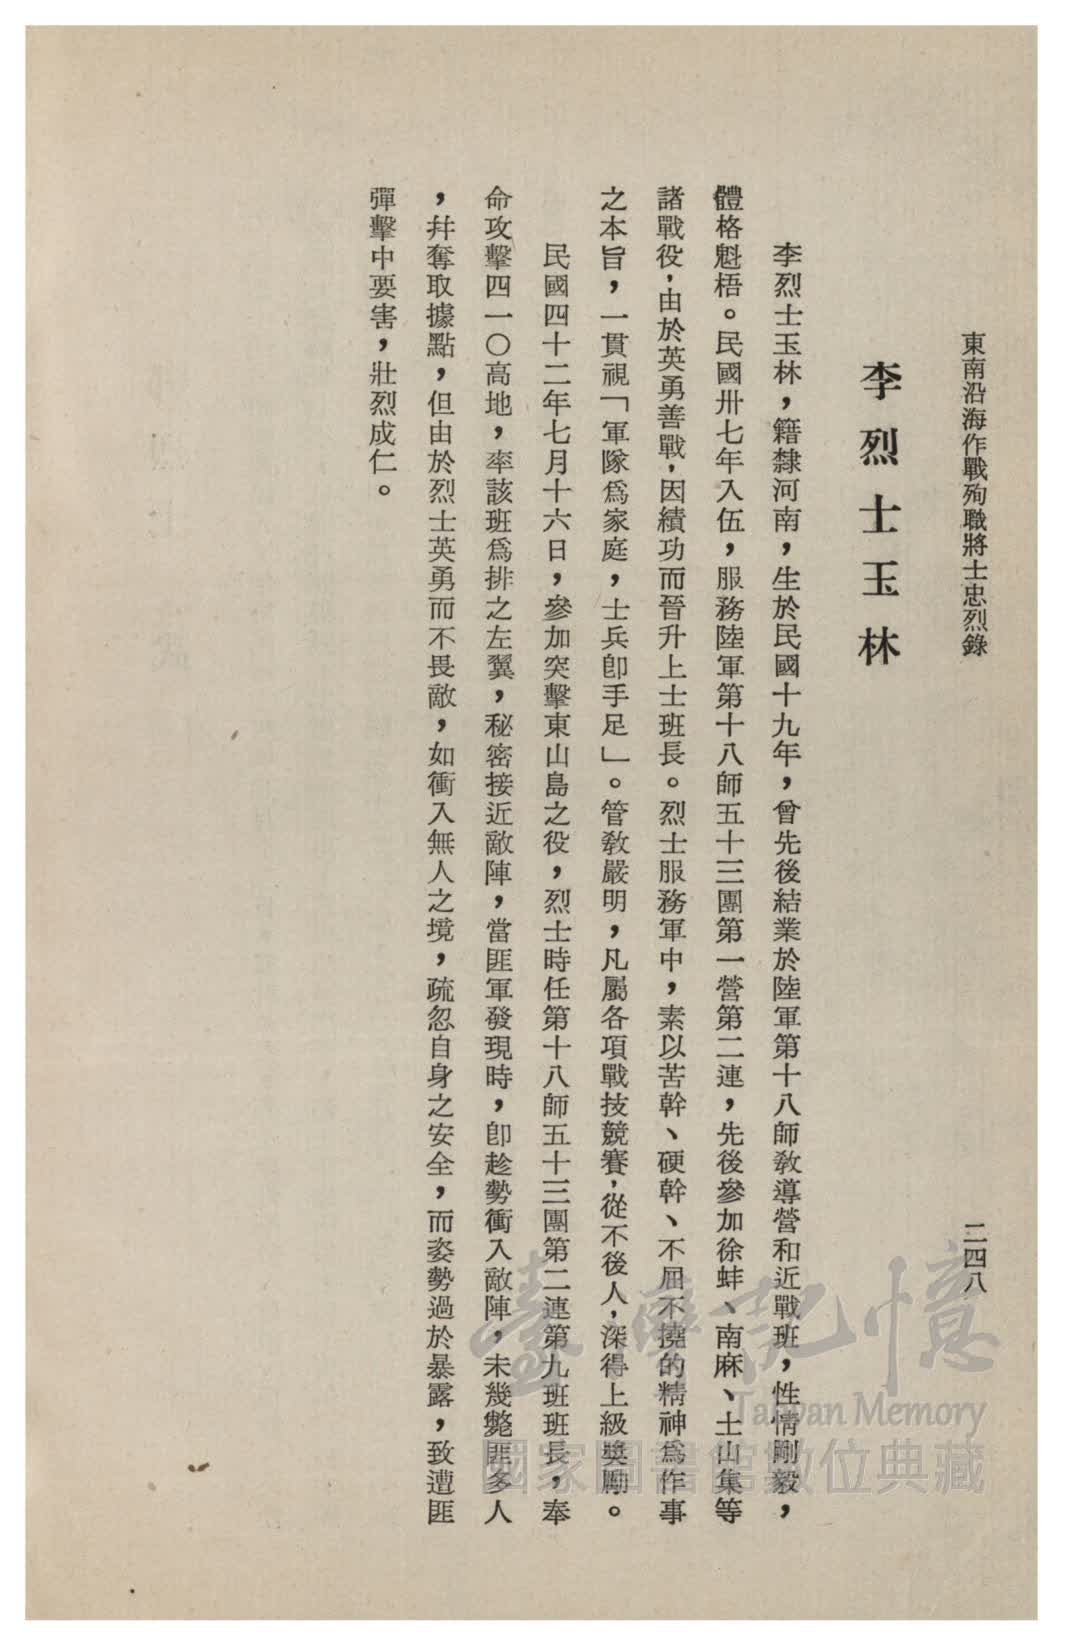 東南沿海作戰殉職將士忠烈錄
二四八
李烈士玉林
李烈士玉林，籍隸河南，生於民國十九年，曾先後結業於陸軍第十八師教導營和近戰班，性情剛毅，
體格魁梧。民國卅七年入伍，服務陸軍第十八師五十三團第一營第二連，先後參加徐蚌、南麻、土山集等
諸戰役，由於英勇善戰，因績功而晉升上士班長。烈士服務軍中，素以苦幹、硬幹、不屈不撓的精神爲作事
之本旨，一貫視「軍隊爲家庭，士兵卽手足」。管教嚴明，凡屬各項戰技競賽，從不後人，深得上級獎勵。
民國四十二年七月十六日，參加突擊東山島之役，烈士時任第十八師五十三團第二連第九班班長，奉
命攻擊四一〇高地，率該班爲排之左翼，秘密接近敵陣，當匪軍發現時，卽趁勢衝入敵陣，未幾斃匪多人
，幷奪取據點，但由於烈士英勇而不畏敵，如衝入無人之境，疏忽自身之安全，而姿勢過於暴露，致遭匪
彈擊中要害，壯烈成仁。
臺灣記憶
Taiwan Memory
國家圖書館數位典藏